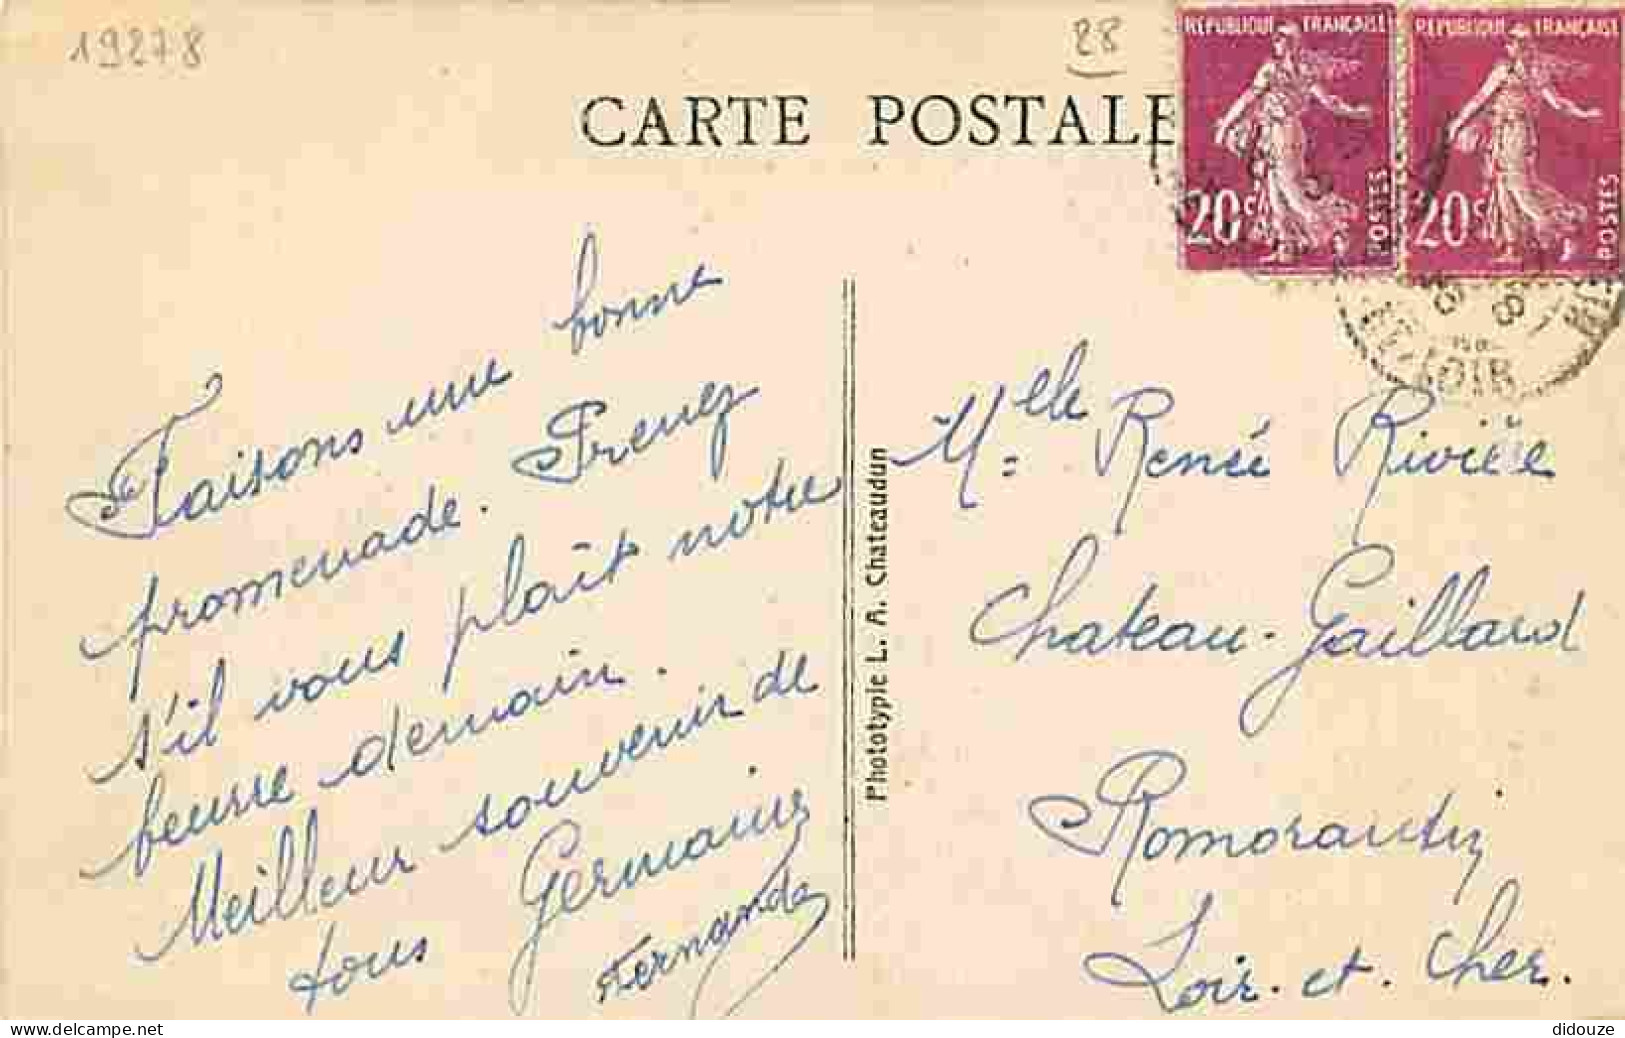 19278
28
CARTE POSTALE
REPUBLIQUE FRANÇAISE
20c
POSTES
REPUBLIQUE FRANÇAISE
20c
POSTES
Faisons une bonne
promenade. Prenez
s'il vous plaît notre
beurre demain.
Meilleur souvenir de
tous Germaine
Fernande
Phototypie L. A. Chateaudun
Melle Renée Rivière
Chateau-Gaillard
Romorantin
Loir-et-Cher.
delcampe.net
didouze